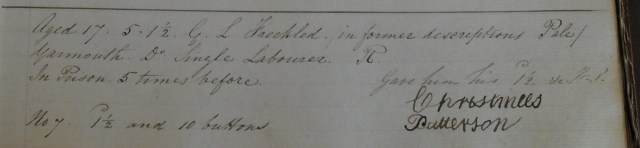 Aged 17. 5-1½. G. L Freckled. in former descriptions Pale/
Yarmouth. Do Single Labourer. R.
In Prison 5 times before. Gave him his 1½
No 7. 1½ and 10 buttons Christmees
Patterson